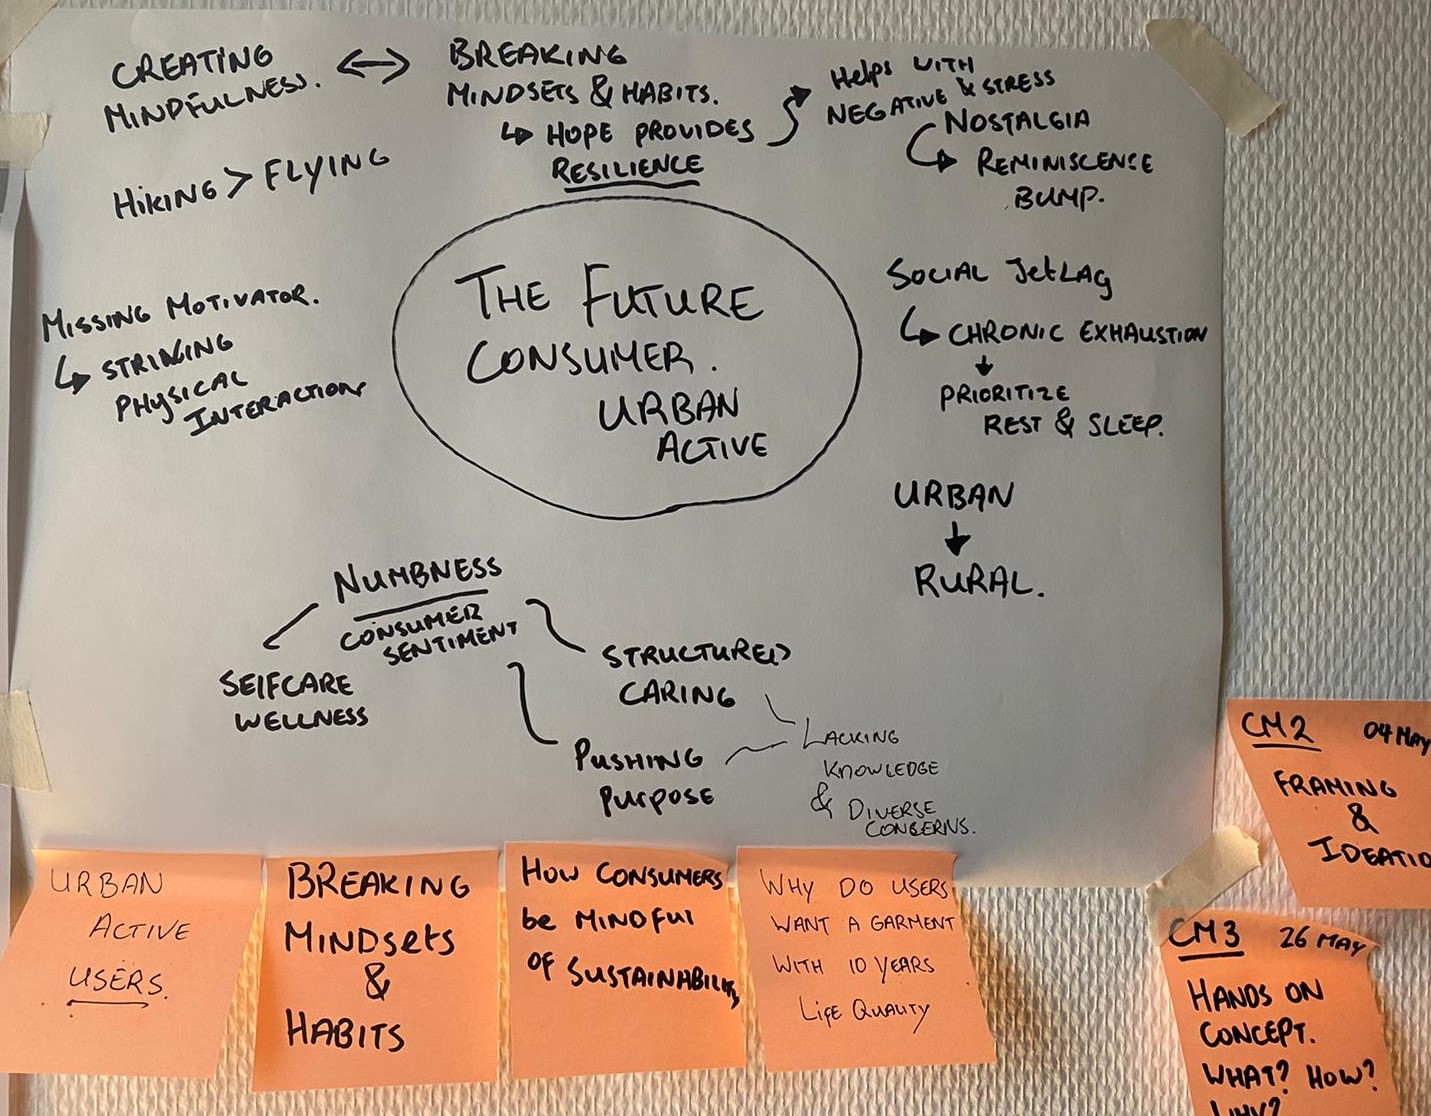 CREATING
MINDFULNESS.
BREAKING
MINDSETS & HABITS.
↳ HOPE PROVIDES
RESILIENCE
Helps WITH
NEGATIVE & STRESS
NOSTALGIA
REMINISCENSE
BUMP.
HIKING > FLYING
THE FUTURE
CONSUMER.
URBAN
ACTIVE
MISSING MOTIVATOR.
↳ STRINGING
PHYSICAL
INTERACTIONS
SOCIAL JetLAG
↳ CHRONIC EXHAUSTION
↓
PRIORITIZE
REST & SLEEP.
URBAN
↓
RURAL.
NUMBNESS
CONSUMER
SENTIMENT
SELFCARE
WELLNESS
STRUCTURED
CARING
PUSHING
PURPOSE
LACKING
KNOWLEDGE
& DIVERSE
CONCERNS.
URBAN
ACTIVE
USERS.
BREAKING
MINDsets
&
HABITS
HOW CONSUMERS
be MINDFUL
OF SUSTAINABILITY
WHY DO USERS
WANT A GARMENT
WITH 10 YEARS
LIFE QUALITY
CM2 04 MAY
FRAMING
&
IDEATIO
CM3 26 MAY
HANDS ON
CONCEPT.
WHAT? HOW?
WHY?